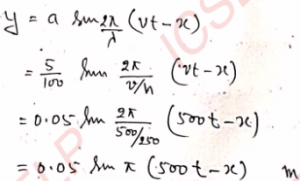 y = a sin 2π/λ (vt - x)
= 5/100 sin 2π/v/n (vt - x)
= 0.05 sin 2π/500/250 (500t - x)
= 0.05 sin π (500t - x) m